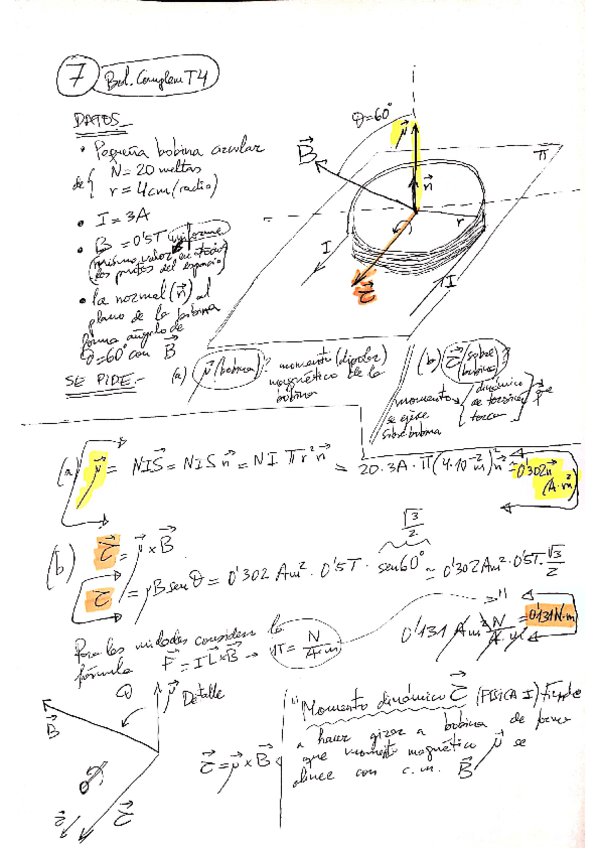 7 Bol. Complem T4
DATOS
θ=60°
• Pequeña bobina circular
de { N= 20 vueltas
r = 4cm (radio)
• I=3A
• B = 0'5T uniforme
mismo valor en todos
los puntos del espacio
• La normal (n) al
plano de la bobina
forma ángulo de
θ=60° con B
SE PIDE.-
B
μ
n
r
π
I
I
τ
(a) μ (bobina)? momento (dipolar)
magnético de la
bobina
(b) τ (sobre bobina)?
momento { dinámico
de torsión
torca } que
se ejerce
sobre bobina
(a) μ = NIS = NIS n = N I. π r² n = 20.3A.π(4.10⁻² m)² n ≃ 0'302 n (A.m²)
(b) τ = μ x B
τ = μ B sen θ = 0'302 Am². 0'5T. sen60° ≃ 0'302 Am². 0'5T. √3/2
√3/2
0'131 Am² N/A.m = 0'131 N.m
Para las unidades considera la
fórmula F = I L x B → 1T = N/A.m
θ
μ Detalle
B
τ
τ
τ = μ x B
"Momento dinámico τ (FÍSICA I) tiende
a hacer girar a bobina de forma
que momento magnético μ se
alinee con c.m. B